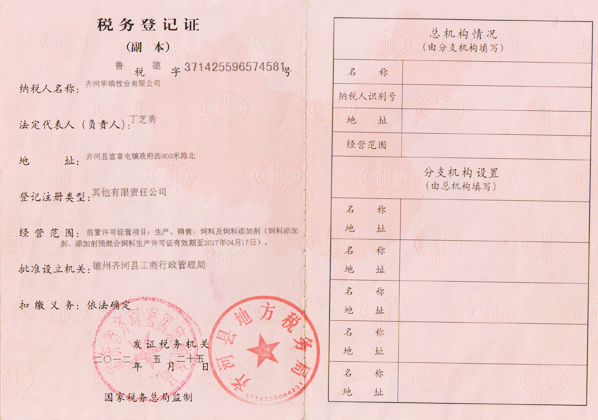 税务登记证
(副 本)
鲁 税 德 字 371425596574581号
纳税人名称: 齐河华瑞牧业有限公司
法定代表人(负责人): 丁芝勇
地 址: 齐河县宣章屯镇政府西800米路北
登记注册类型: 其他有限责任公司
经营范围: 前置许可经营项目:生产、销售:饲料及饲料添加剂(饲料添加
剂、添加剂预混合饲料生产许可证有效期至2017年04月17日)。
批准设立机关: 德州齐河县工商行政管理局
扣缴义务: 依法确定
发证税务机关
二〇一二年 五月二十五日
国家税务总局监制
齐河县地方税务局
总机构情况
(由分支机构填写)
名 称
纳税人识别号
地 址
经营范围
分支机构设置
(由总机构填写)
名 称
地 址
名 称
地 址
名 称
地 址
名 称
地 址
名 称
地 址